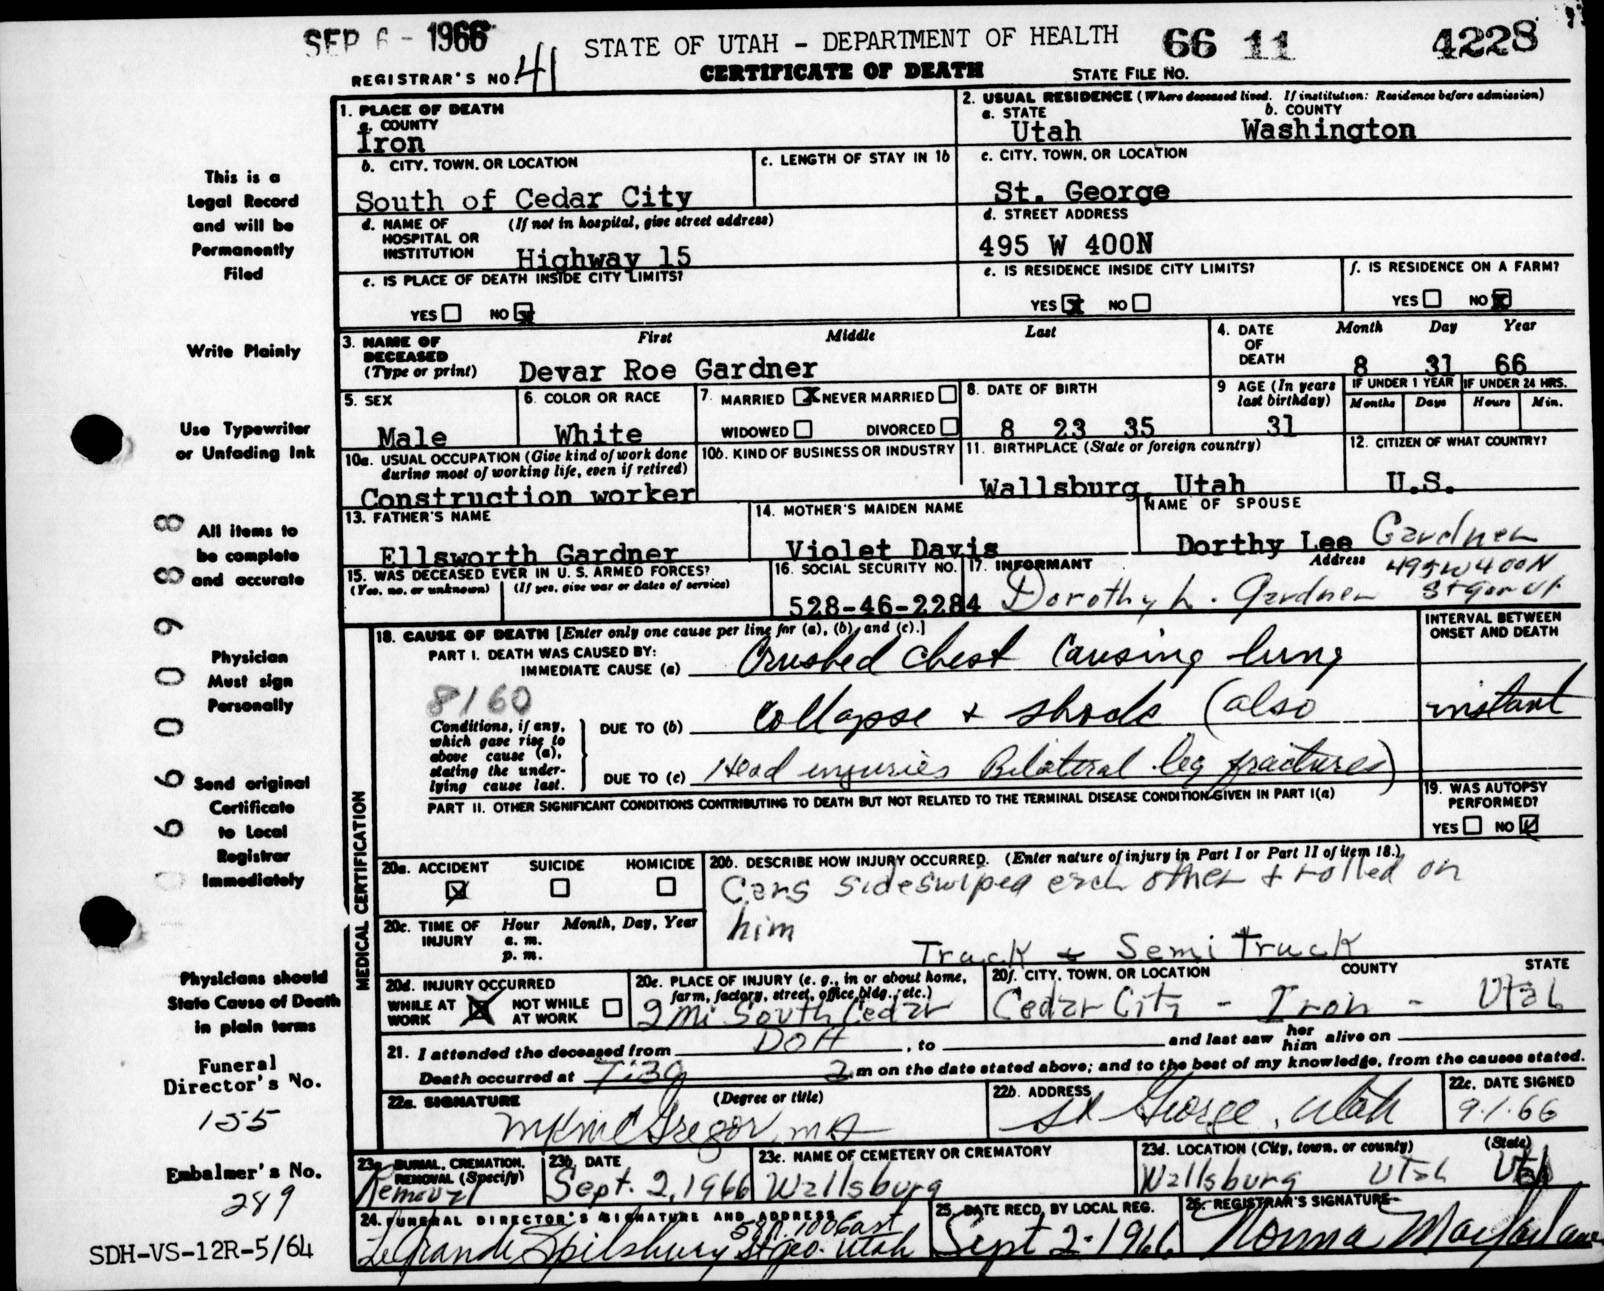 SEP 6 - 1966
STATE OF UTAH - DEPARTMENT OF HEALTH
66 11 4228
REGISTRAR'S NO. 41
CERTIFICATE OF DEATH
STATE FILE NO.
This is a
Legal Record
and will be
Permanently
Filed
Write Plainly
Use Typewriter
or Unfading Ink
All items to
be complete
and accurate
Physician
Must sign
Personally
Send original
Certificate
to Local
Registrar
Immediately
Physicians should
State Cause of Death
in plain terms
Funeral
Director's No.
155
Embalmer's No.
289
SDH-VS-12R-5/64
1. PLACE OF DEATH
a. COUNTY
Iron
2. USUAL RESIDENCE (Where deceased lived. If institution: Residence before admission)
a. STATE
Utah
b. COUNTY
Washington
b. CITY, TOWN, OR LOCATION
South of Cedar City
c. LENGTH OF STAY IN 1b
c. CITY, TOWN, OR LOCATION
St. George
d. NAME OF HOSPITAL OR INSTITUTION
(If not in hospital, give street address)
Highway 15
d. STREET ADDRESS
495 W 400N
e. IS PLACE OF DEATH INSIDE CITY LIMITS?
YES NO X
e. IS RESIDENCE INSIDE CITY LIMITS?
YES X NO
f. IS RESIDENCE ON A FARM?
YES NO X
3. NAME OF DECEASED
(Type or print)
First Middle Last
Devar Roe Gardner
4. DATE OF DEATH
Month Day Year
8 31 66
5. SEX
Male
6. COLOR OR RACE
White
7. MARRIED X NEVER MARRIED
WIDOWED DIVORCED
8. DATE OF BIRTH
8 23 35
9 AGE (In years last birthday)
31
IF UNDER 1 YEAR
Months Days
IF UNDER 24 HRS.
Hours Min.
10a. USUAL OCCUPATION (Give kind of work done
during most of working life, even if retired)
Construction worker
10b. KIND OF BUSINESS OR INDUSTRY
11. BIRTHPLACE (State or foreign country)
Wallsburg, Utah
12. CITIZEN OF WHAT COUNTRY?
U.S.
13. FATHER'S NAME
Ellsworth Gardner
14. MOTHER'S MAIDEN NAME
Violet Davis
NAME OF SPOUSE
Dorthy Lee Gardner
15. WAS DECEASED EVER IN U. S. ARMED FORCES?
(Yes, no, or unknown) (If yes, give war or dates of service)
16. SOCIAL SECURITY NO.
528-46-2284
17. INFORMANT
Dorothy L. Gardner
Address
495 W 400 N
St Geo Ut
18. CAUSE OF DEATH [Enter only one cause per line for (a), (b), and (c).]
PART I. DEATH WAS CAUSED BY:
IMMEDIATE CAUSE (a) Crushed chest causing lung
8160
Conditions, if any,
which gave rise to
above cause (a),
stating the under-
lying cause last.
DUE TO (b) collapse + shock (also
DUE TO (c) Head injuries Bilateral leg fractures)
INTERVAL BETWEEN
ONSET AND DEATH
instant
PART II. OTHER SIGNIFICANT CONDITIONS CONTRIBUTING TO DEATH BUT NOT RELATED TO THE TERMINAL DISEASE CONDITION GIVEN IN PART I(a)
19. WAS AUTOPSY
PERFORMED?
YES NO
MEDICAL CERTIFICATION
20a. ACCIDENT SUICIDE HOMICIDE
20b. DESCRIBE HOW INJURY OCCURRED. (Enter nature of injury in Part I or Part II of item 18.)
Cars sideswiped each other & rolled on
him
Truck & Semi truck
20c. TIME OF INJURY
Hour Month, Day, Year
a. m.
p. m.
20d. INJURY OCCURRED
WHILE AT WORK X NOT WHILE AT WORK
20e. PLACE OF INJURY (e. g., in or about home,
farm, factory, street, office bldg., etc.)
2 Mi South Cedar
20f. CITY, TOWN, OR LOCATION COUNTY STATE
Cedar City - Iron - Utah
21. I attended the deceased from DOA, to and last saw her him alive on
Death occurred at 7:30 a m on the date stated above; and to the best of my knowledge, from the causes stated.
22a. SIGNATURE (Degree or title)
McGregor, MD
22b. ADDRESS
St George, Utah
22c. DATE SIGNED
9.1.66
23a. BURIAL, CREMATION,
REMOVAL (Specify)
Removal
23b. DATE
Sept. 2, 1966
23c. NAME OF CEMETERY OR CREMATORY
Wallsburg
23d. LOCATION (City, town, or county) (State)
Wallsburg Utah Utah
24. FUNERAL DIRECTOR'S SIGNATURE AND ADDRESS
LeGrande Spilsbury St Geo. Utah
25. DATE RECD. BY LOCAL REG.
Sept 2-1966
26. REGISTRAR'S SIGNATURE
Norma Macfarlane
660098 88